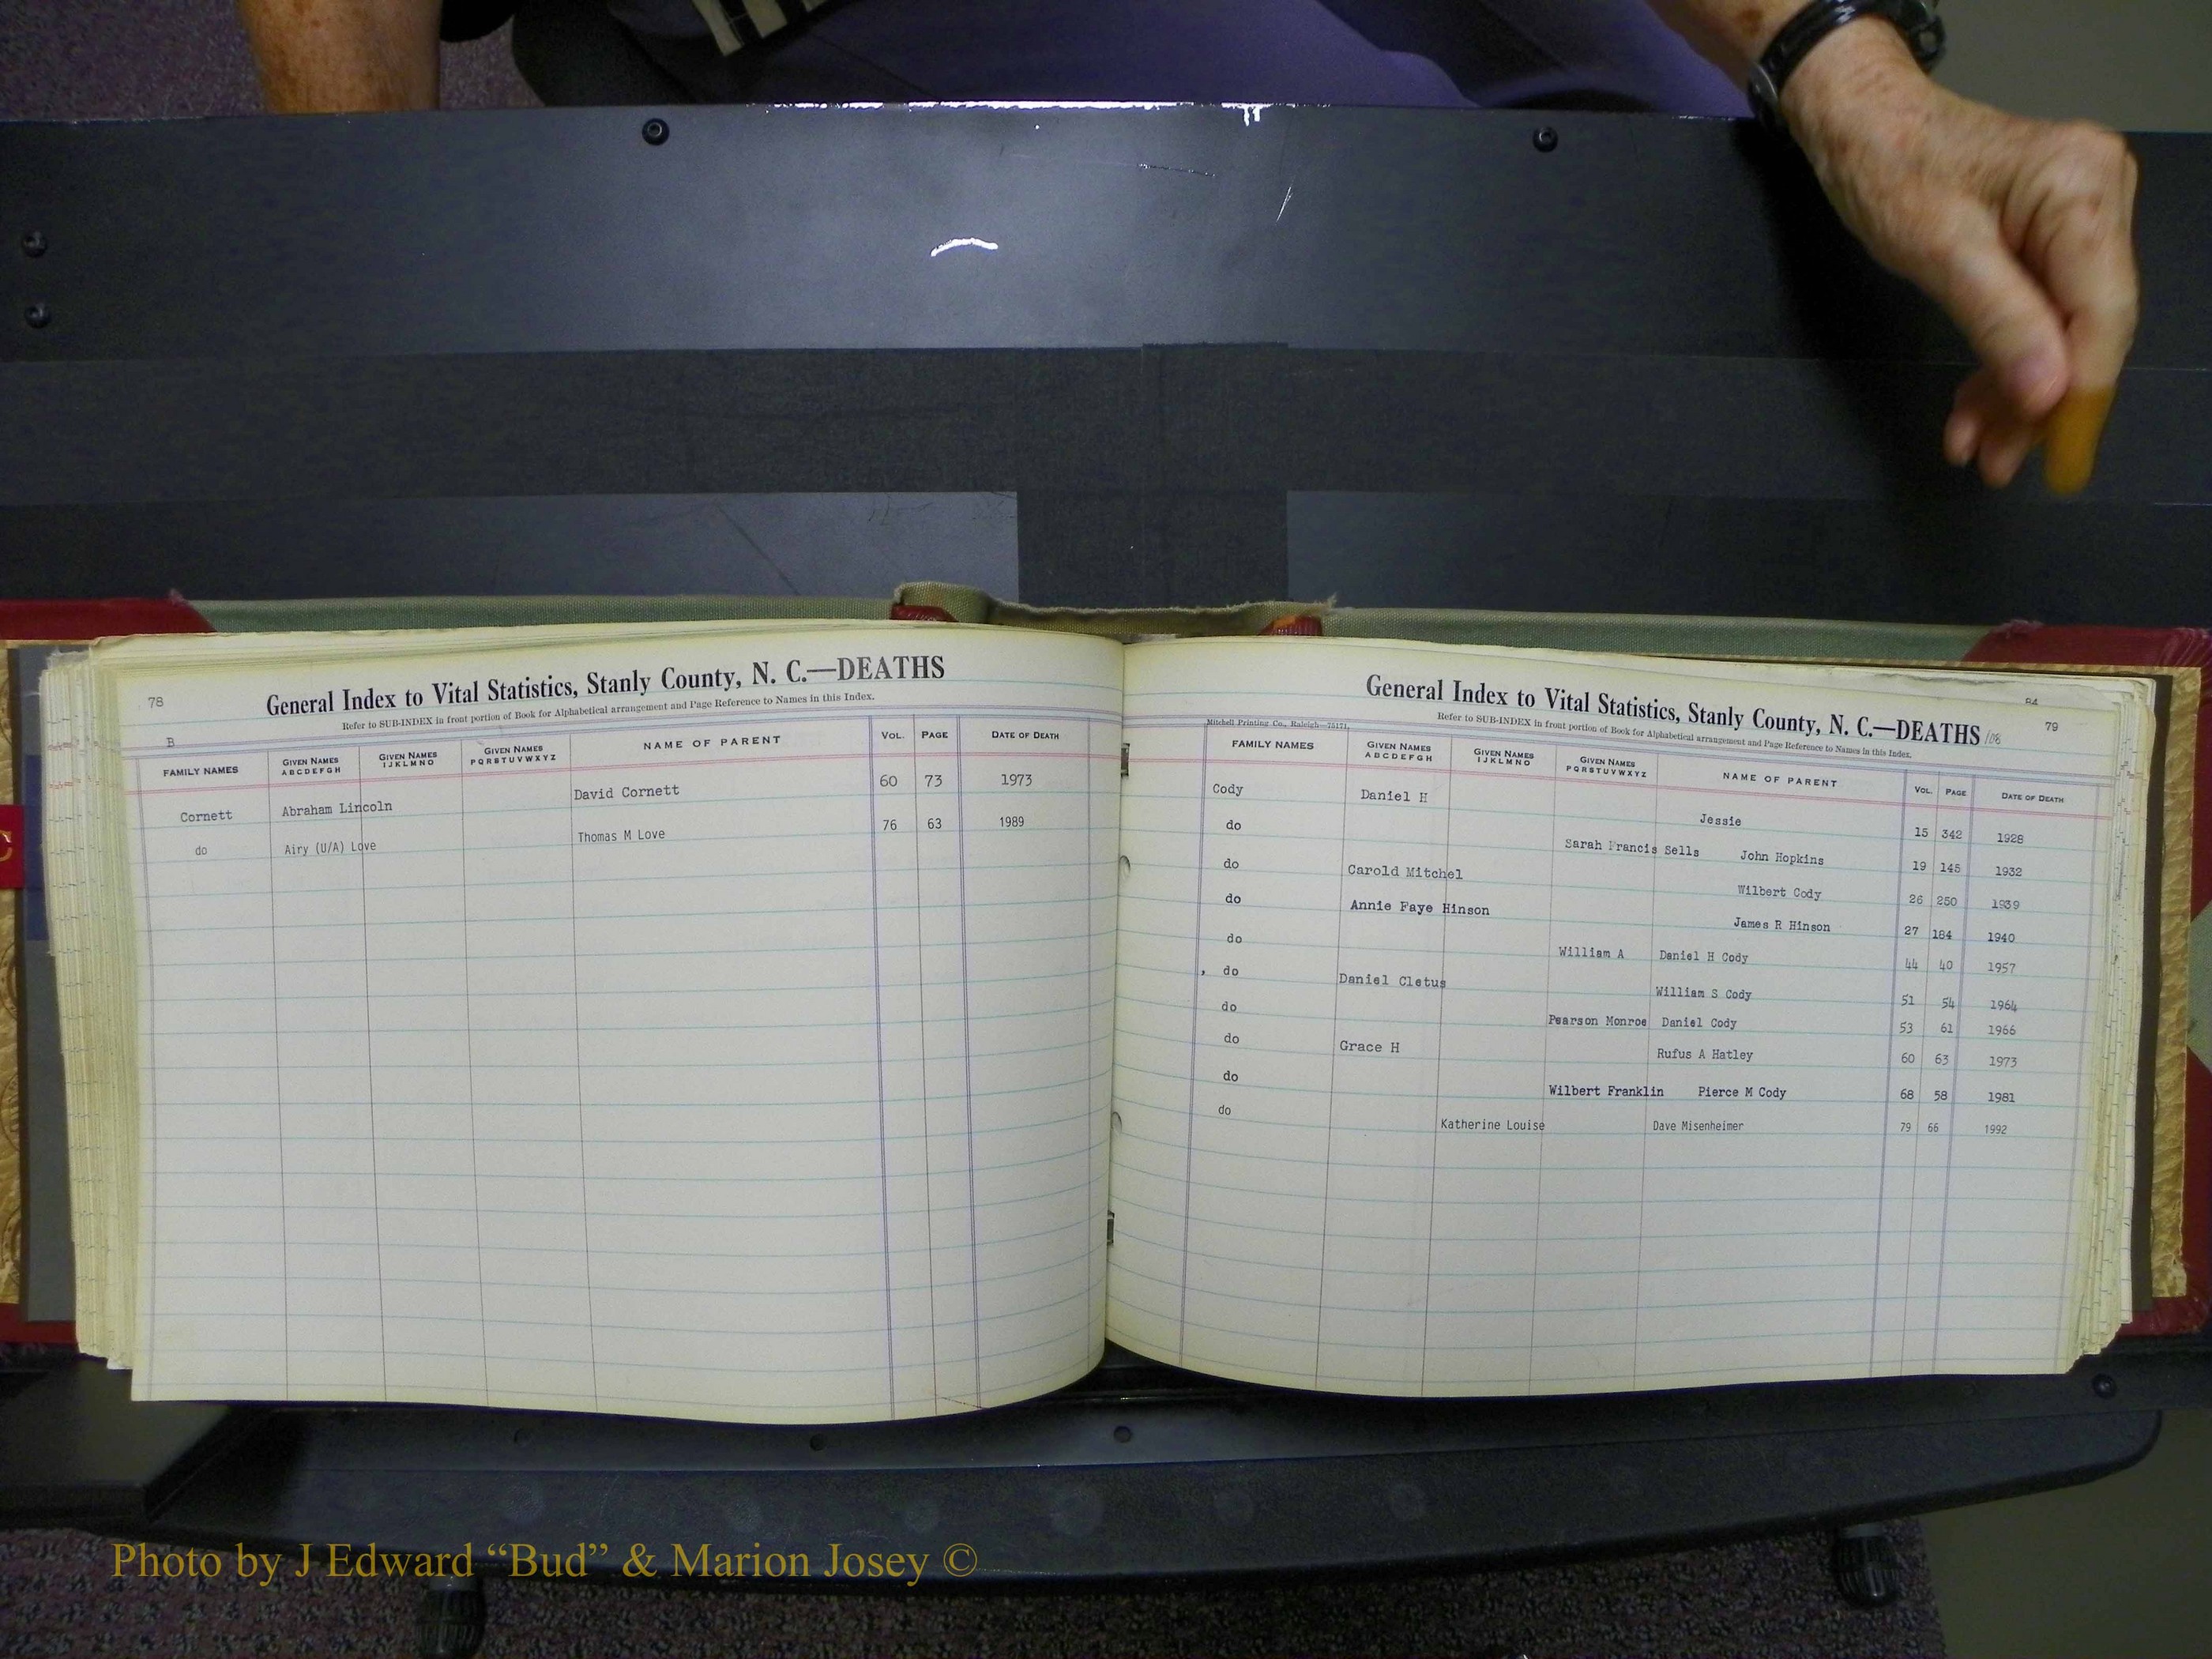 78
General Index to Vital Statistics, Stanly County, N. C.—DEATHS
Refer to SUB-INDEX in front portion of Book for Alphabetical arrangement and Page Reference to Names in this Index.
B
FAMILY NAMES GIVEN NAMES ABCDEFGH GIVEN NAMES IJKLMNO GIVEN NAMES PQRSTUVWXYZ NAME OF PARENT VOL. PAGE DATE OF DEATH
Cornett Abraham Lincoln David Cornett 60 73 1973
do Airy (U/A) Love Thomas M Love 76 63 1989
84
79
General Index to Vital Statistics, Stanly County, N. C.—DEATHS 108
Mitchell Printing Co., Raleigh—75171.
Refer to SUB-INDEX in front portion of Book for Alphabetical arrangement and Page Reference to Names in this Index.
FAMILY NAMES GIVEN NAMES ABCDEFGH GIVEN NAMES IJKLMNO GIVEN NAMES PQRSTUVWXYZ NAME OF PARENT VOL. PAGE DATE OF DEATH
Cody Daniel H Jessie 15 342 1928
do Sarah Francis Sells John Hopkins 19 145 1932
do Carold Mitchel Wilbert Cody 26 250 1939
do Annie Faye Hinson James R Hinson 27 184 1940
do William A Daniel H Cody 44 40 1957
, do Daniel Cletus William S Cody 51 54 1964
do Pearson Monroe Daniel Cody 53 61 1966
do Grace H Rufus A Hatley 60 63 1973
do Wilbert Franklin Pierce M Cody 68 58 1981
do Katherine Louise Dave Misenheimer 79 66 1992
C
Photo by J Edward “Bud” & Marion Josey ©